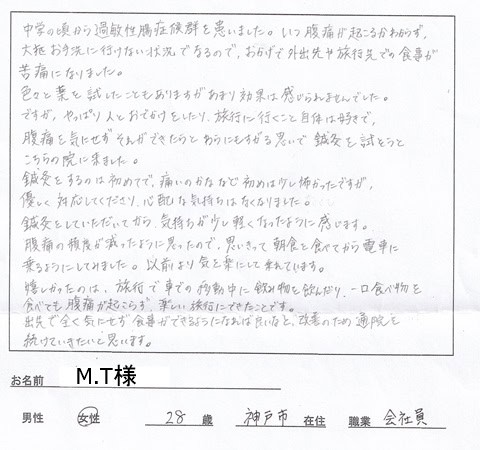 中学の頃から過敏性腸症候群を患いました。いつ腹痛が起こるかわからず、
大抵お手洗に行けない状況でなるので、おかげで外出先や旅行先での食事が
苦痛になりました。
色々と薬を試したこともありますがあまり効果は感じられませんでした。
ですが、やっぱり人とおでかけをしたり、旅行に行くこと自体は好きで、
腹痛を気にせずそれができたらとわらにもすがる思いで鍼灸を試そうと
こちらの院に来ました。
鍼灸をするのは初めてで、痛いのかななど初めは少し怖かったですが、
優しく対応してくださり、心配な気持ちはなくなりました。
鍼灸をしていただいてから、気持ちが少し軽くなったように感じます。
腹痛の頻度が減ったように思ったので、思いきって朝食を食べてから電車に
乗るようにしてみました。以前より気を楽にして乗れています。
嬉しかったのは、旅行で車での移動中に飲み物を飲んだり、一口食べ物を
食べても腹痛が起こらず、楽しい旅行にできたことです。
出先で全く気にせず食事ができるようになれば良いなと、改善のため通院を
続けていきたいと思います。
お名前 M.T様
男性 女性 28 歳 神戸市 在住 職業 会社員